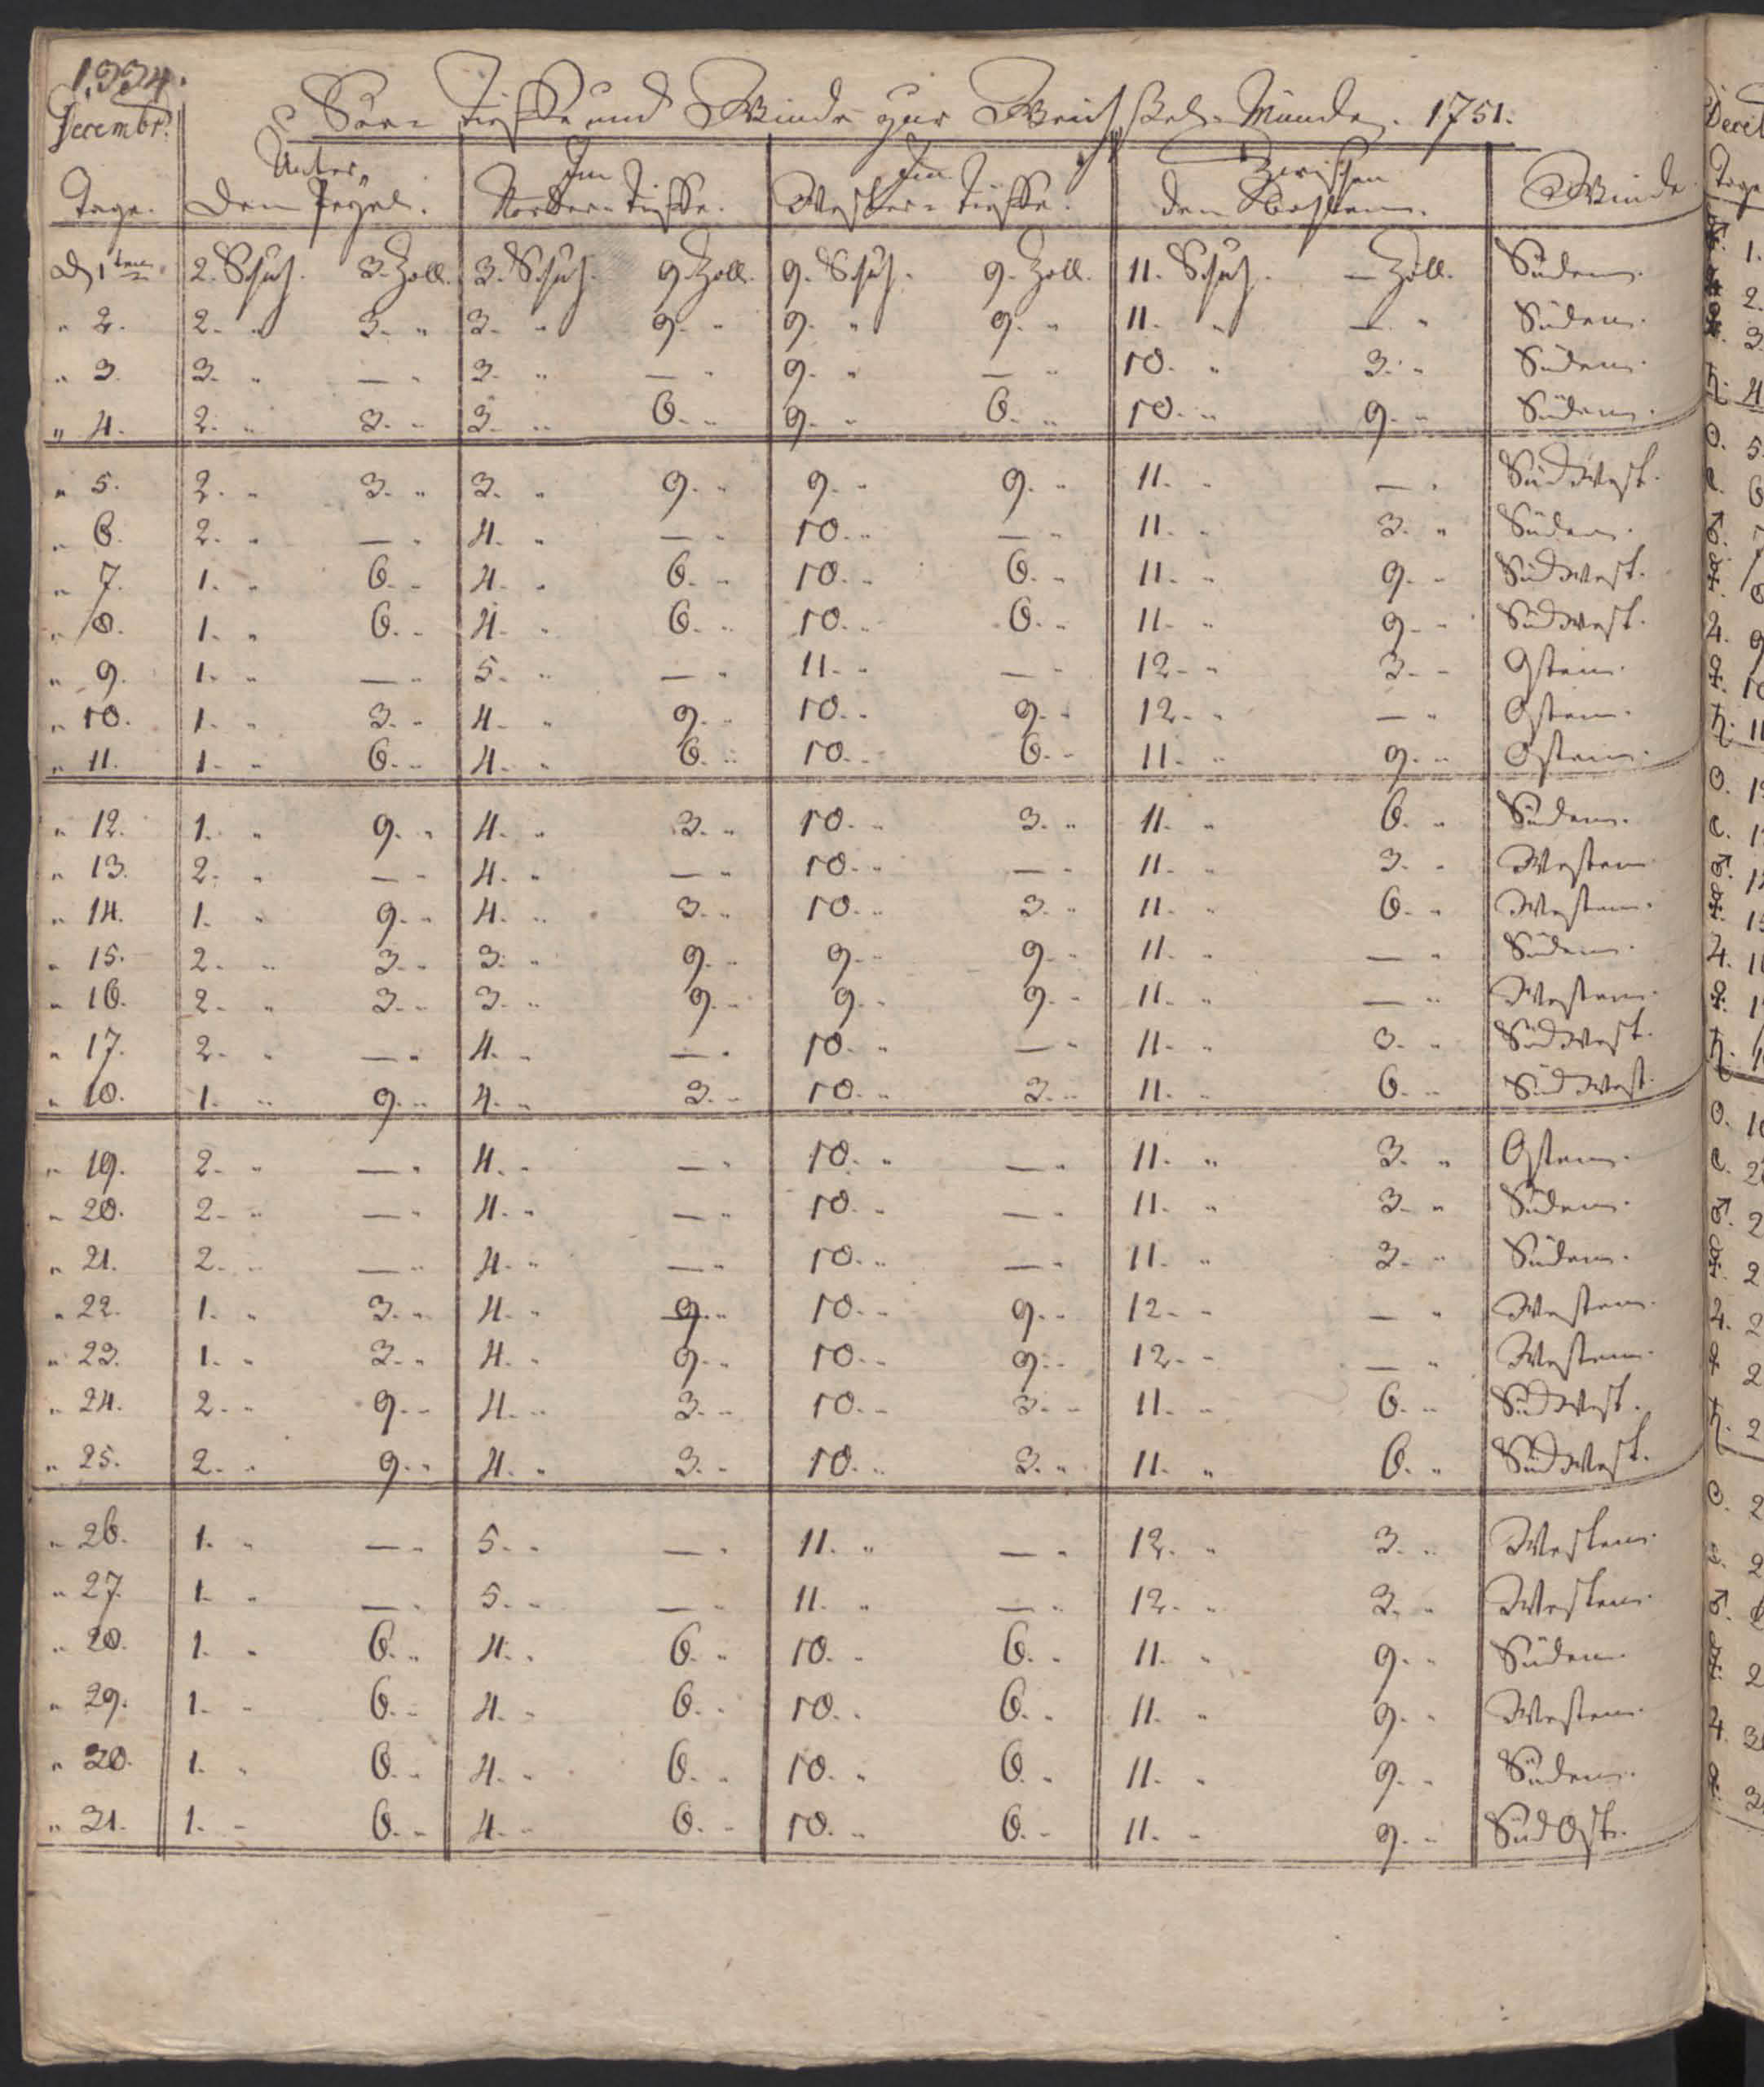 1334.
Decembr:
See- Tieffe und Winde zur Weichsel-Münde. 1751.
Tage. Unter dem Pegel. Im Norder-Tieffe. Im Wester-Tieffe. Zwischen den Winde.
d 1ten. 2. Schuh. 3. Zoll. 3. Schuh. 9. Zoll. 9. Schuh. 9. Zoll. 11. Schuh. — Zoll. Süden.
" 2. 2. " 3. " 3. " 9. " 9. " 9. " 11. " — " Süden.
" 3. 3. " — " 3. " — " 9. " — " 10. " 3. " Süden.
" 4. 2. " 3. " 3. " 6. " 9. " 6. " 10. " 9. " Süden.
" 5. 2. " 3. " 3. " 9. " 9. " 9. " 11. " — " SüdWest.
" 6. 2. " — " 4. " — " 10. " — " 11. " 3. " Süden.
" 7. 1. " 6. " 4. " 6. " 10. " 6. " 11. " 9. " SüdWest.
" 8. 1. " 6. " 4. " 6. " 10. " 6. " 11. " 9. " SüdWest.
" 9. 1. " — " 5. " — " 11. " — " 12. " 3. " Osten.
" 10. 1. " 3. " 4. " 9. " 10. " 9. " 12. " — " Osten.
" 11. 1. " 6. " 4. " 6. " 10. " 6. " 11. " 9. " Osten.
" 12. 1. " 9. " 4. " 3. " 10. " 3. " 11. " 6. " Süden.
" 13. 2. " — " 4. " — " 10. " — " 11. " 3. " Westen
" 14. 1. " 9. " 4. " 3. " 10. " 3. " 11. " 6. " Westen.
" 15. 2. " 3. " 3. " 9. " 9. " 9. " 11. " — " Süden.
" 16. 2. " 3. " 3. " 9. " 9. " 9. " 11. " — " Westen.
" 17. 2. " — " 4. " — " 10. " — " 11. " 3. " SüdWest.
" 18. 1. " 9. " 4. " 3. " 10. " 3. " 11. " 6. " SüdWest.
" 19. 2. " — " 4. " — " 10. " — " 11. " 3. " Osten.
" 20. 2. " — " 4. " — " 10. " — " 11. " 3. " Süden.
" 21. 2. " — " 4. " — " 10. " — " 11. " 3. " Süden.
" 22. 1. " 3. " 4. " 9. " 10. " 9. " 12. " — " Westen.
" 23. 1. " 3. " 4. " 9. " 10. " 9. " 12. " — " Westen.
" 24. 2. " 9. " 4. " 3. " 10. " 3. " 11. " 6. " SüdWest.
" 25. 2. " 9. " 4. " 3. " 10. " 3. " 11. " 6. " SüdWest.
" 26. 1. " — " 5. " — " 11. " — " 12. " 3. " Westen.
" 27. 1. " — " 5. " — " 11. " — " 12. " 3. " Westen.
" 28. 1. " 6. " 4. " 6. " 10. " 6. " 11. " 9. " Süden.
" 29. 1. " 6. " 4. " 6. " 10. " 6. " 11. " 9. " Westen.
" 30. 1. " 6. " 4. " 6. " 10. " 6. " 11. " 9. " Süden.
" 31. 1. " 6. " 4. " 6. " 10. " 6. " 11. " 9. " SüdOst.